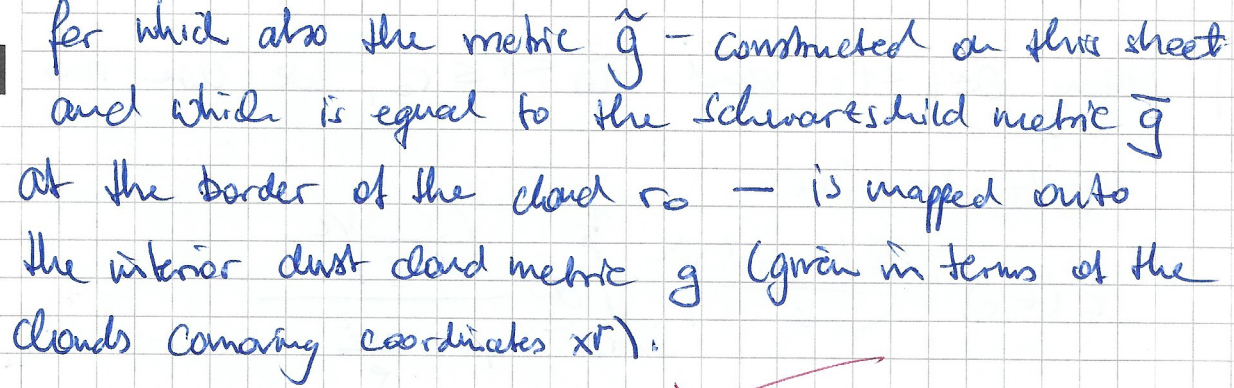 for which also the metric g̃ – constructed on this sheet
and which is equal to the Schwartshild metric g̅
at the border of the cloud r₀ — is mapped onto
the interior dust cloud metric g (given in terms of the
clouds comoving coordinates xʳ).